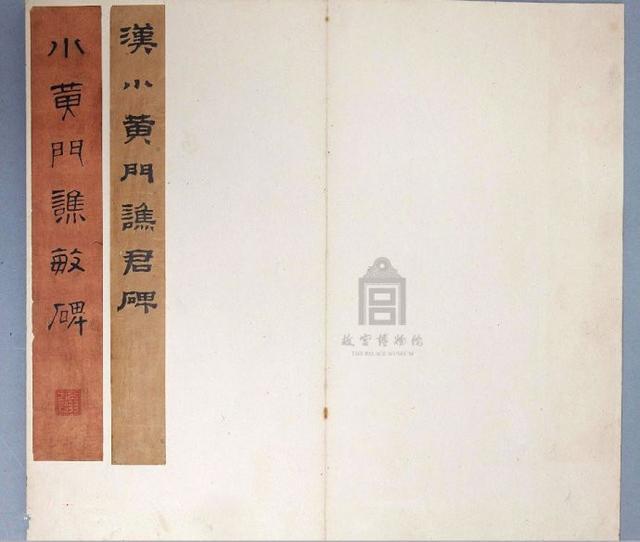 漢小黄門譙君碑
小黄門譙敏碑
故宫博物院
THE PALACE MUSEUM